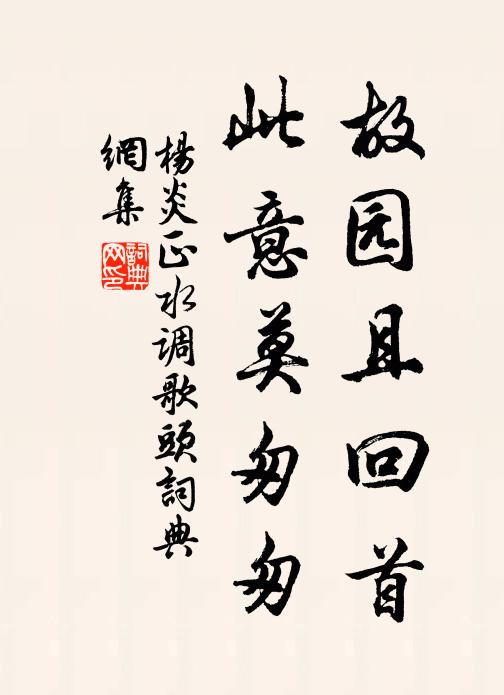 故园且回首
此意莫匆匆
楊炎正水调歌頭詞典
網集
詞典
网印